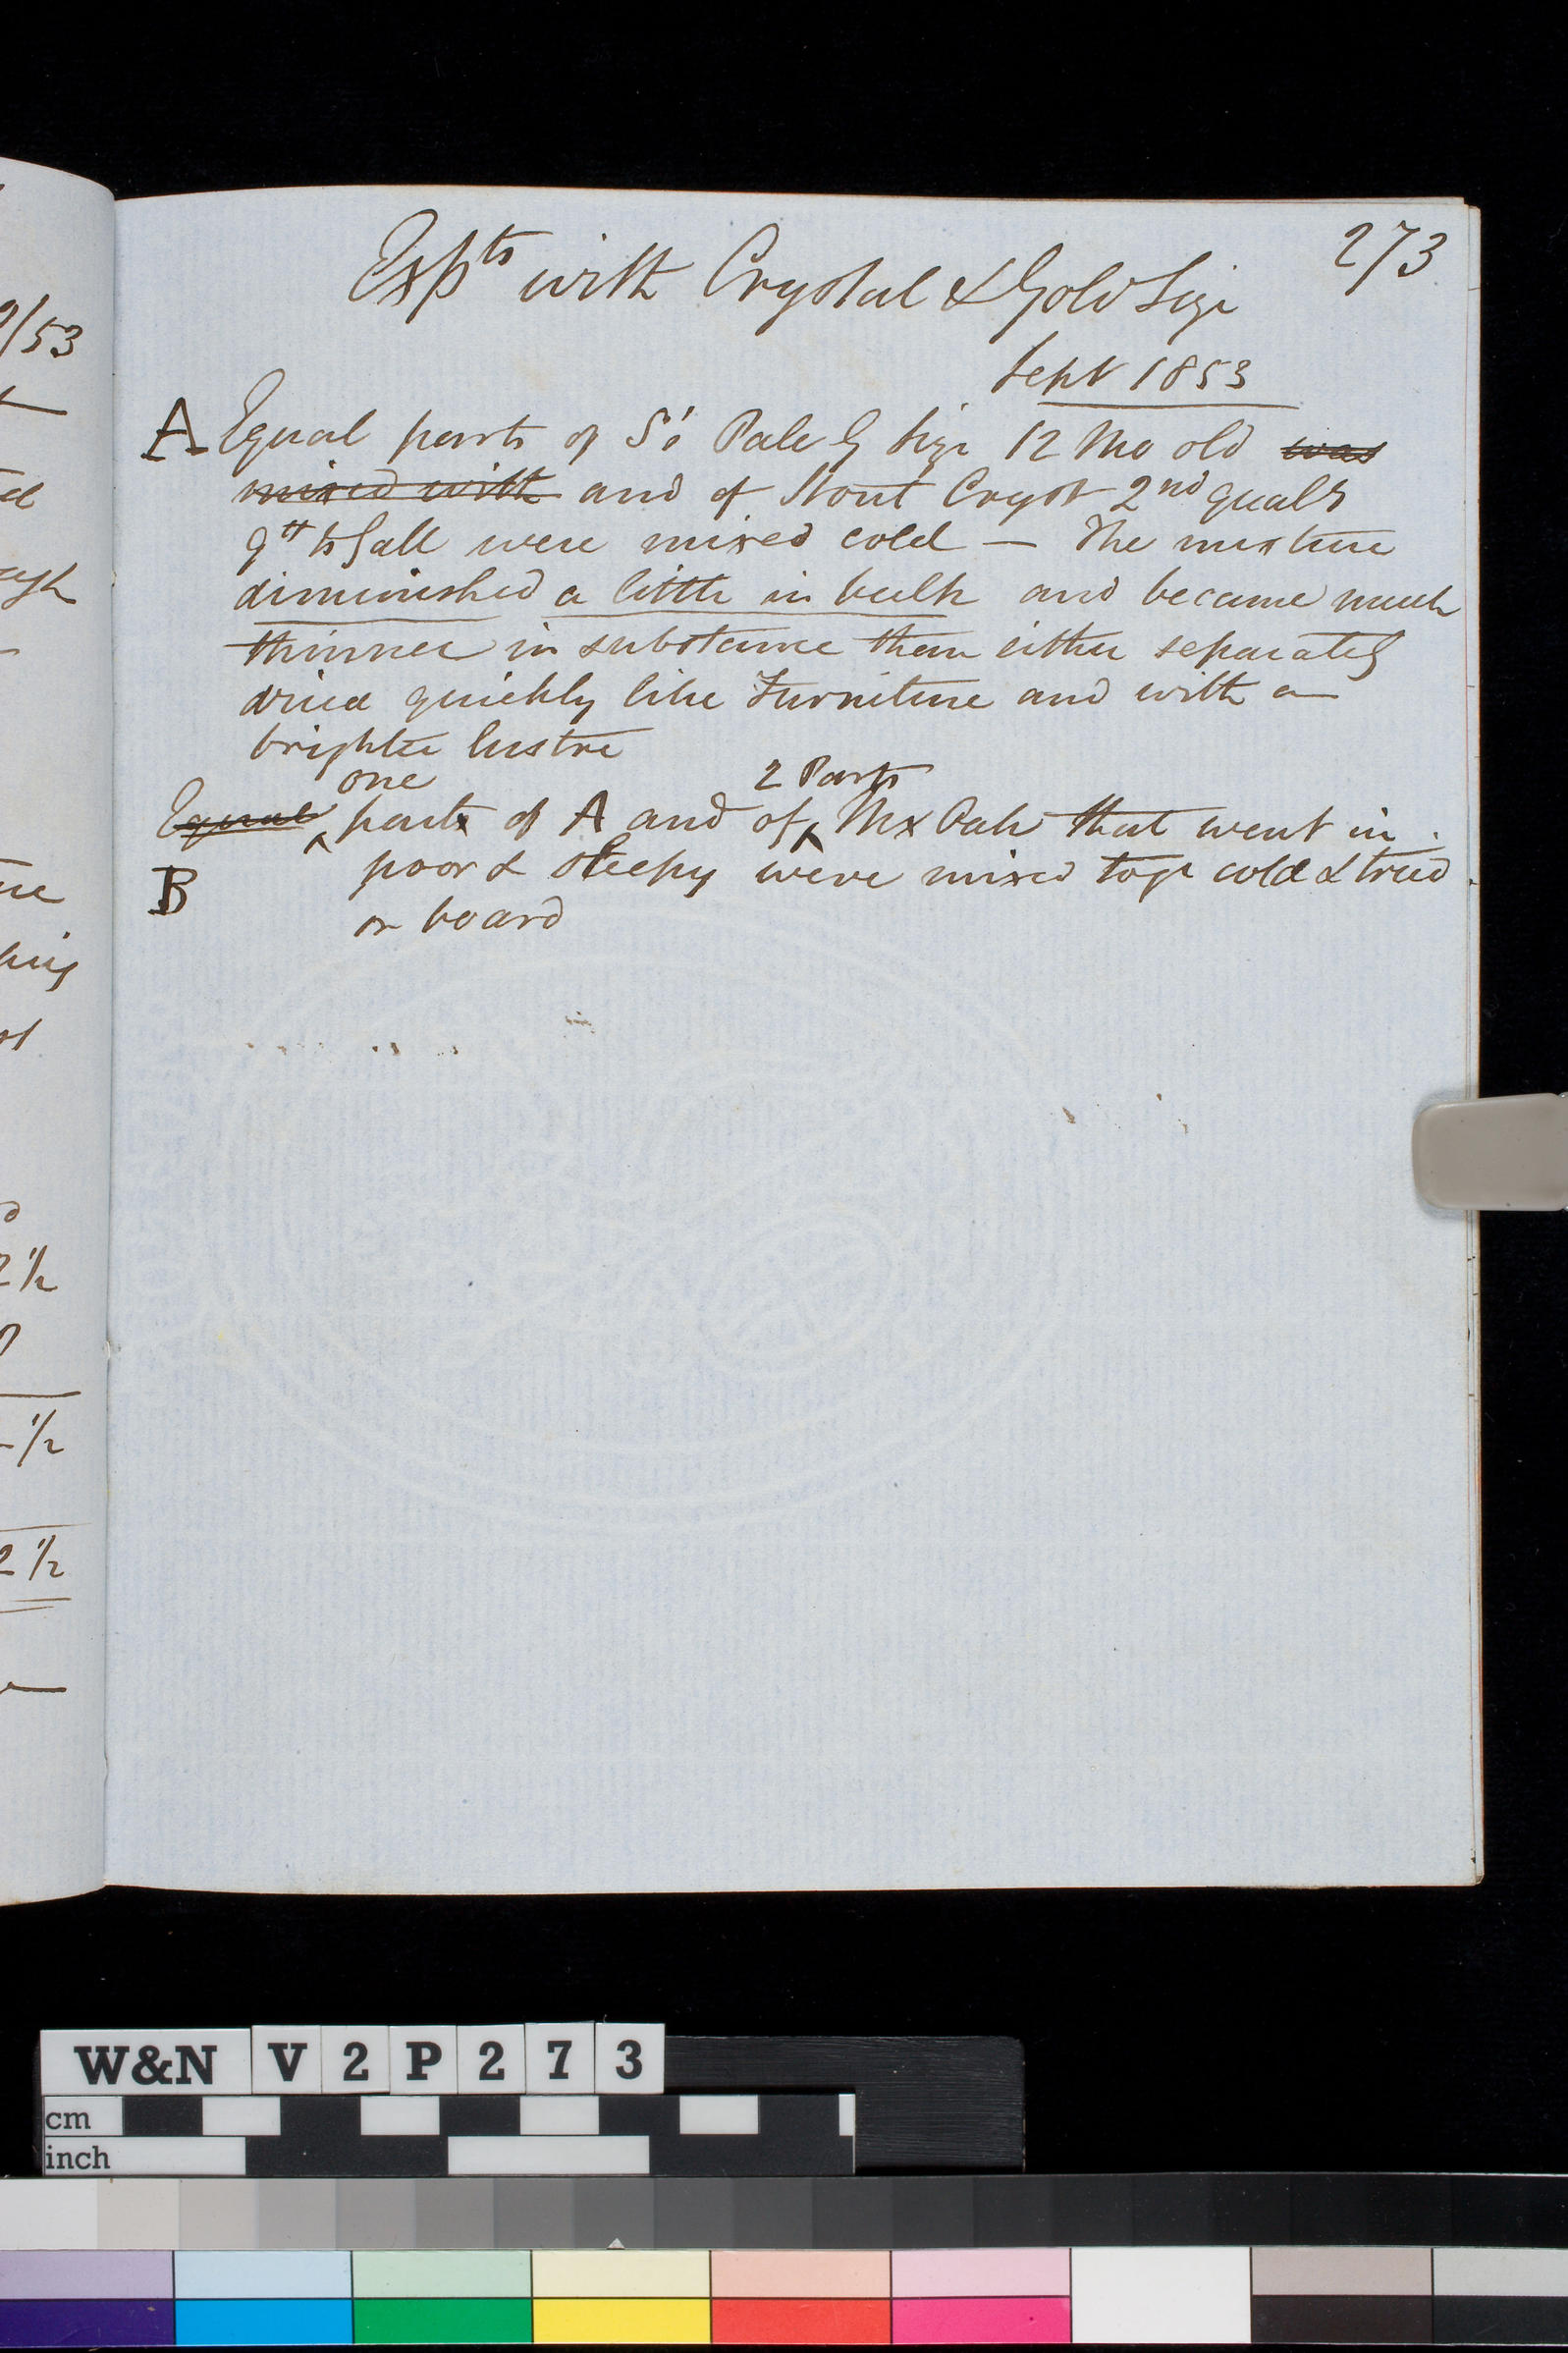 273
Expts with Crystal & Gold Size
Sept 1853
A Equal parts of Pale G Size 12 Mo old was
mixed with and of Stout Cryst 2nd qualy
9 to Gall were mixed cold — The mixture
diminished a little in bulk and became much
thinner in substance than either separately
dried quickly like Furniture and with a
brighter lustre
one 2 Parts
Equal parts of A and of Mx Oak that went in
B poor & sleepy were mixed togr cold & tried
on board
9/53
2 1/2
1/2
2 1/2
W&N V2P273
cm
inch